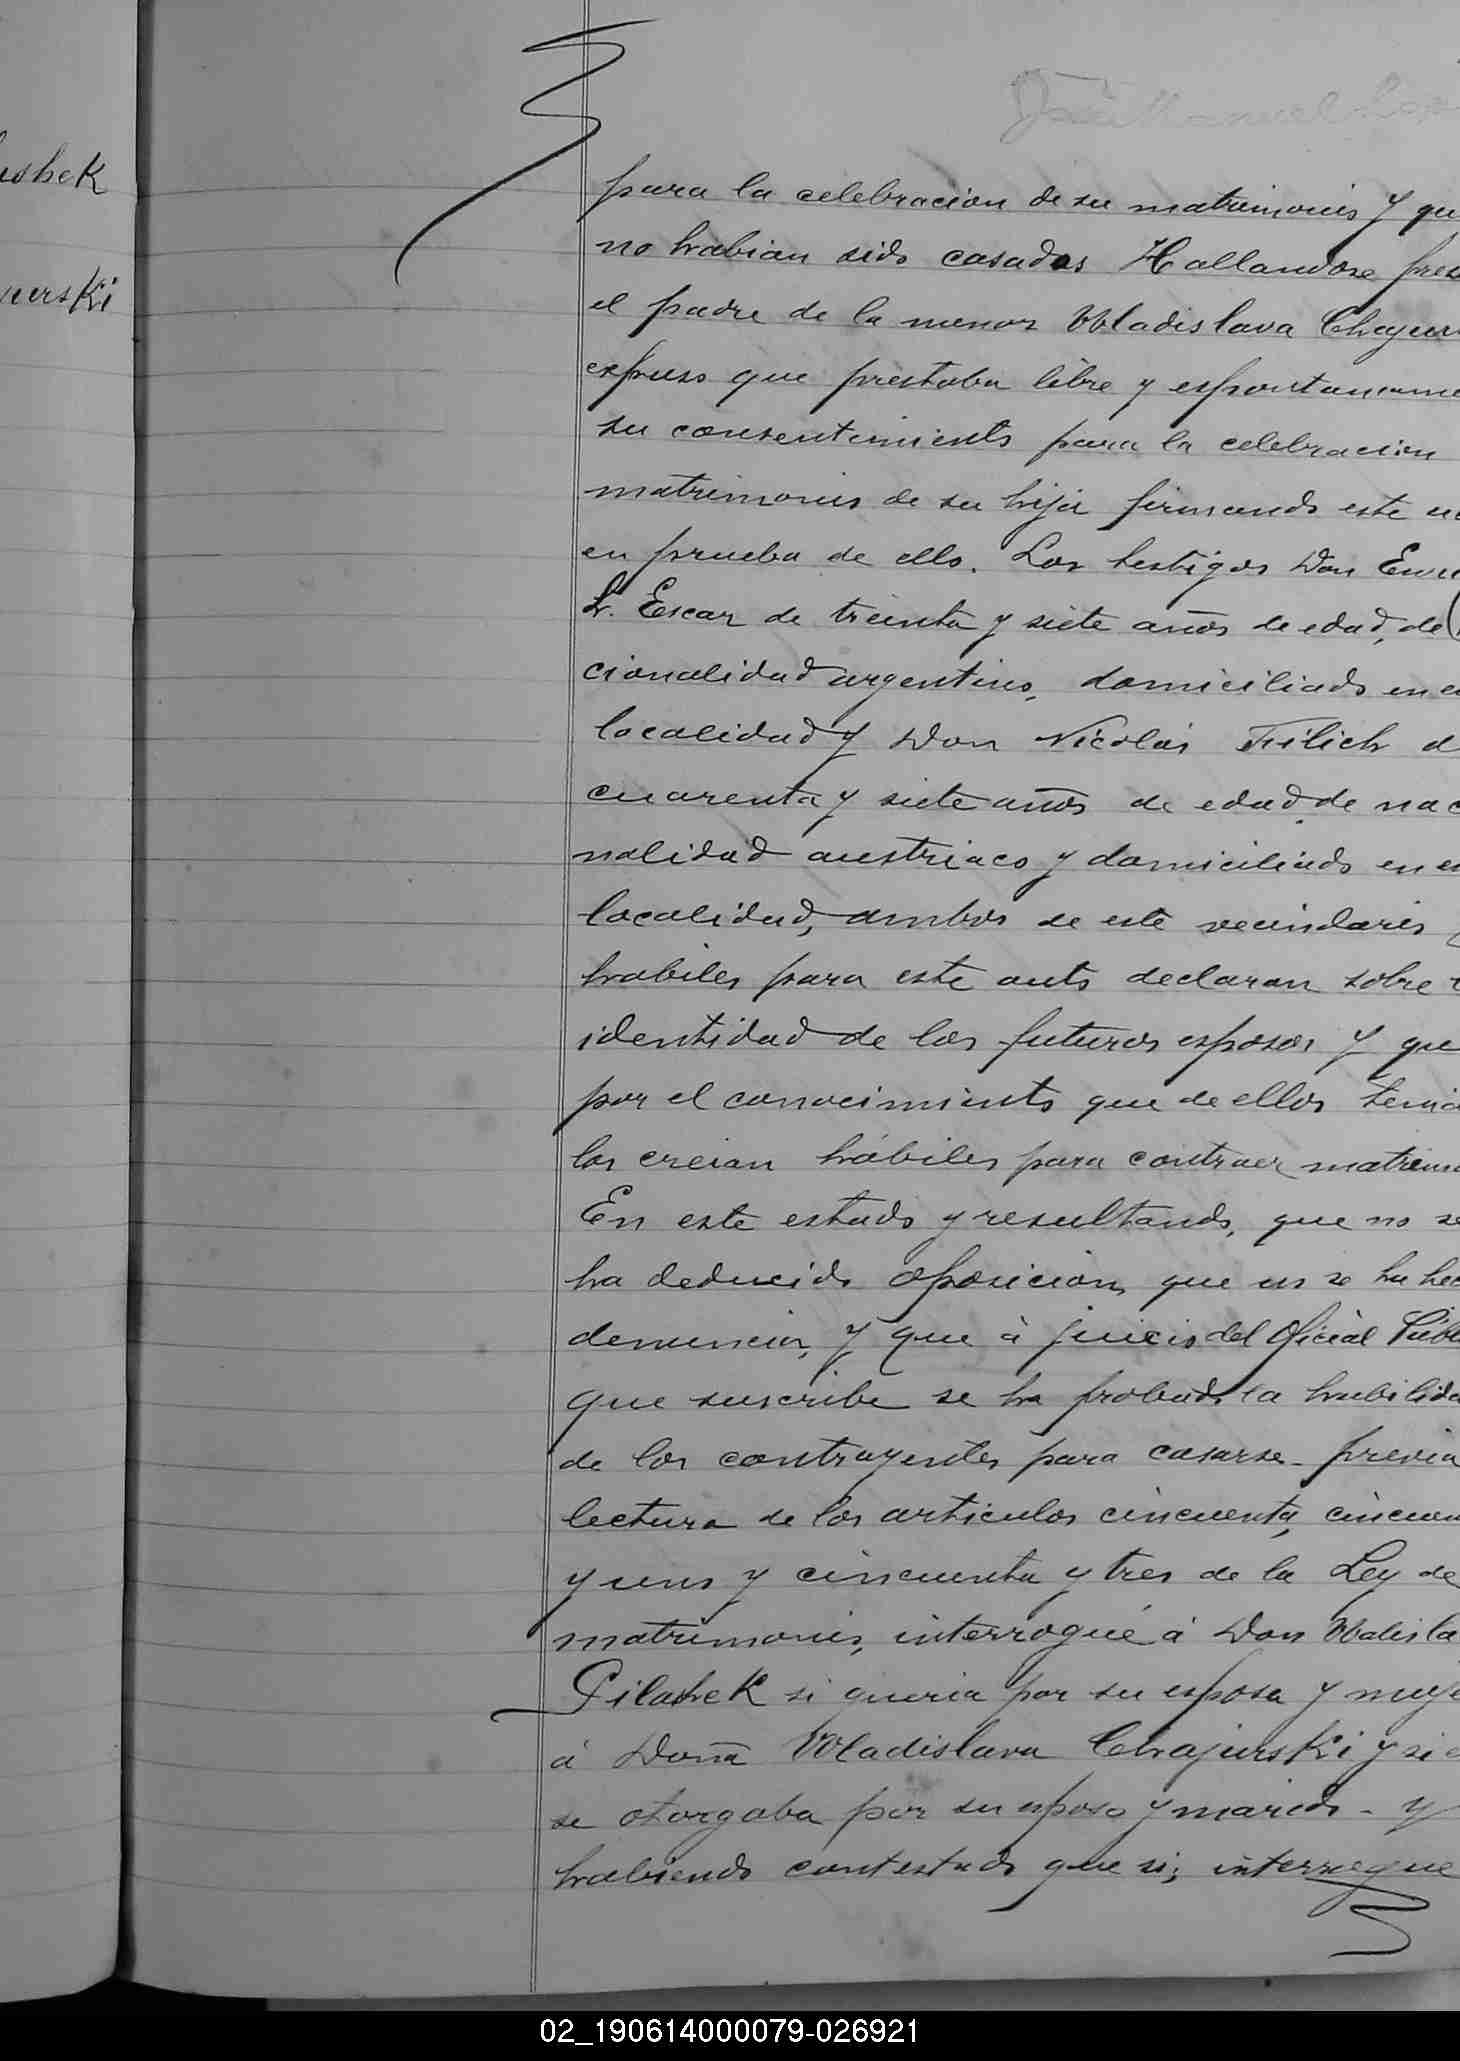 ushek
urski
José Manuel
para la celebracion de su matrimonio y qu
no habian sido casados Hallandose pres
el padre de la menor Wladislava Chajur
expuso que prestaba libre y espontaneame
su consentimiento para la celebracion
matrimonio de su hija firmando este
en prueba de ello. Los testigos Don
L. Escar de treinta y siete años de edad, de
cionalidad argentino, domiciliado en
localidad y Don Nicolás Filich d
cuarenta y siete años de edad de nac
nalidad austriaco y domiciliado en
localidad, ambos de este vecindario
habiles para este auto declaran sobre
identidad de los futuros esposos y que
por el conocimiento que de ellos tenia
los creian hábiles para contraer matrim
En este estado y resultando, que no se
ha deducido oposicion, que no se ha hec
denuncia, y que á juicio del Oficial Públ
que suscribe se ha probado la habilida
de los contrayentes para casarse previa
lectura de los articulos cincuenta, cincuen
y uno y cincuenta y tres de la Ley de
matrimonio, interrogué á Don Wadisla
Pilashek si queria por su esposa y muje
á Doña Wladislava Chajurski y si
se otorgaba por su esposo y marido - y
habiendo contestado que si; interrogue
02_190614000079-026921